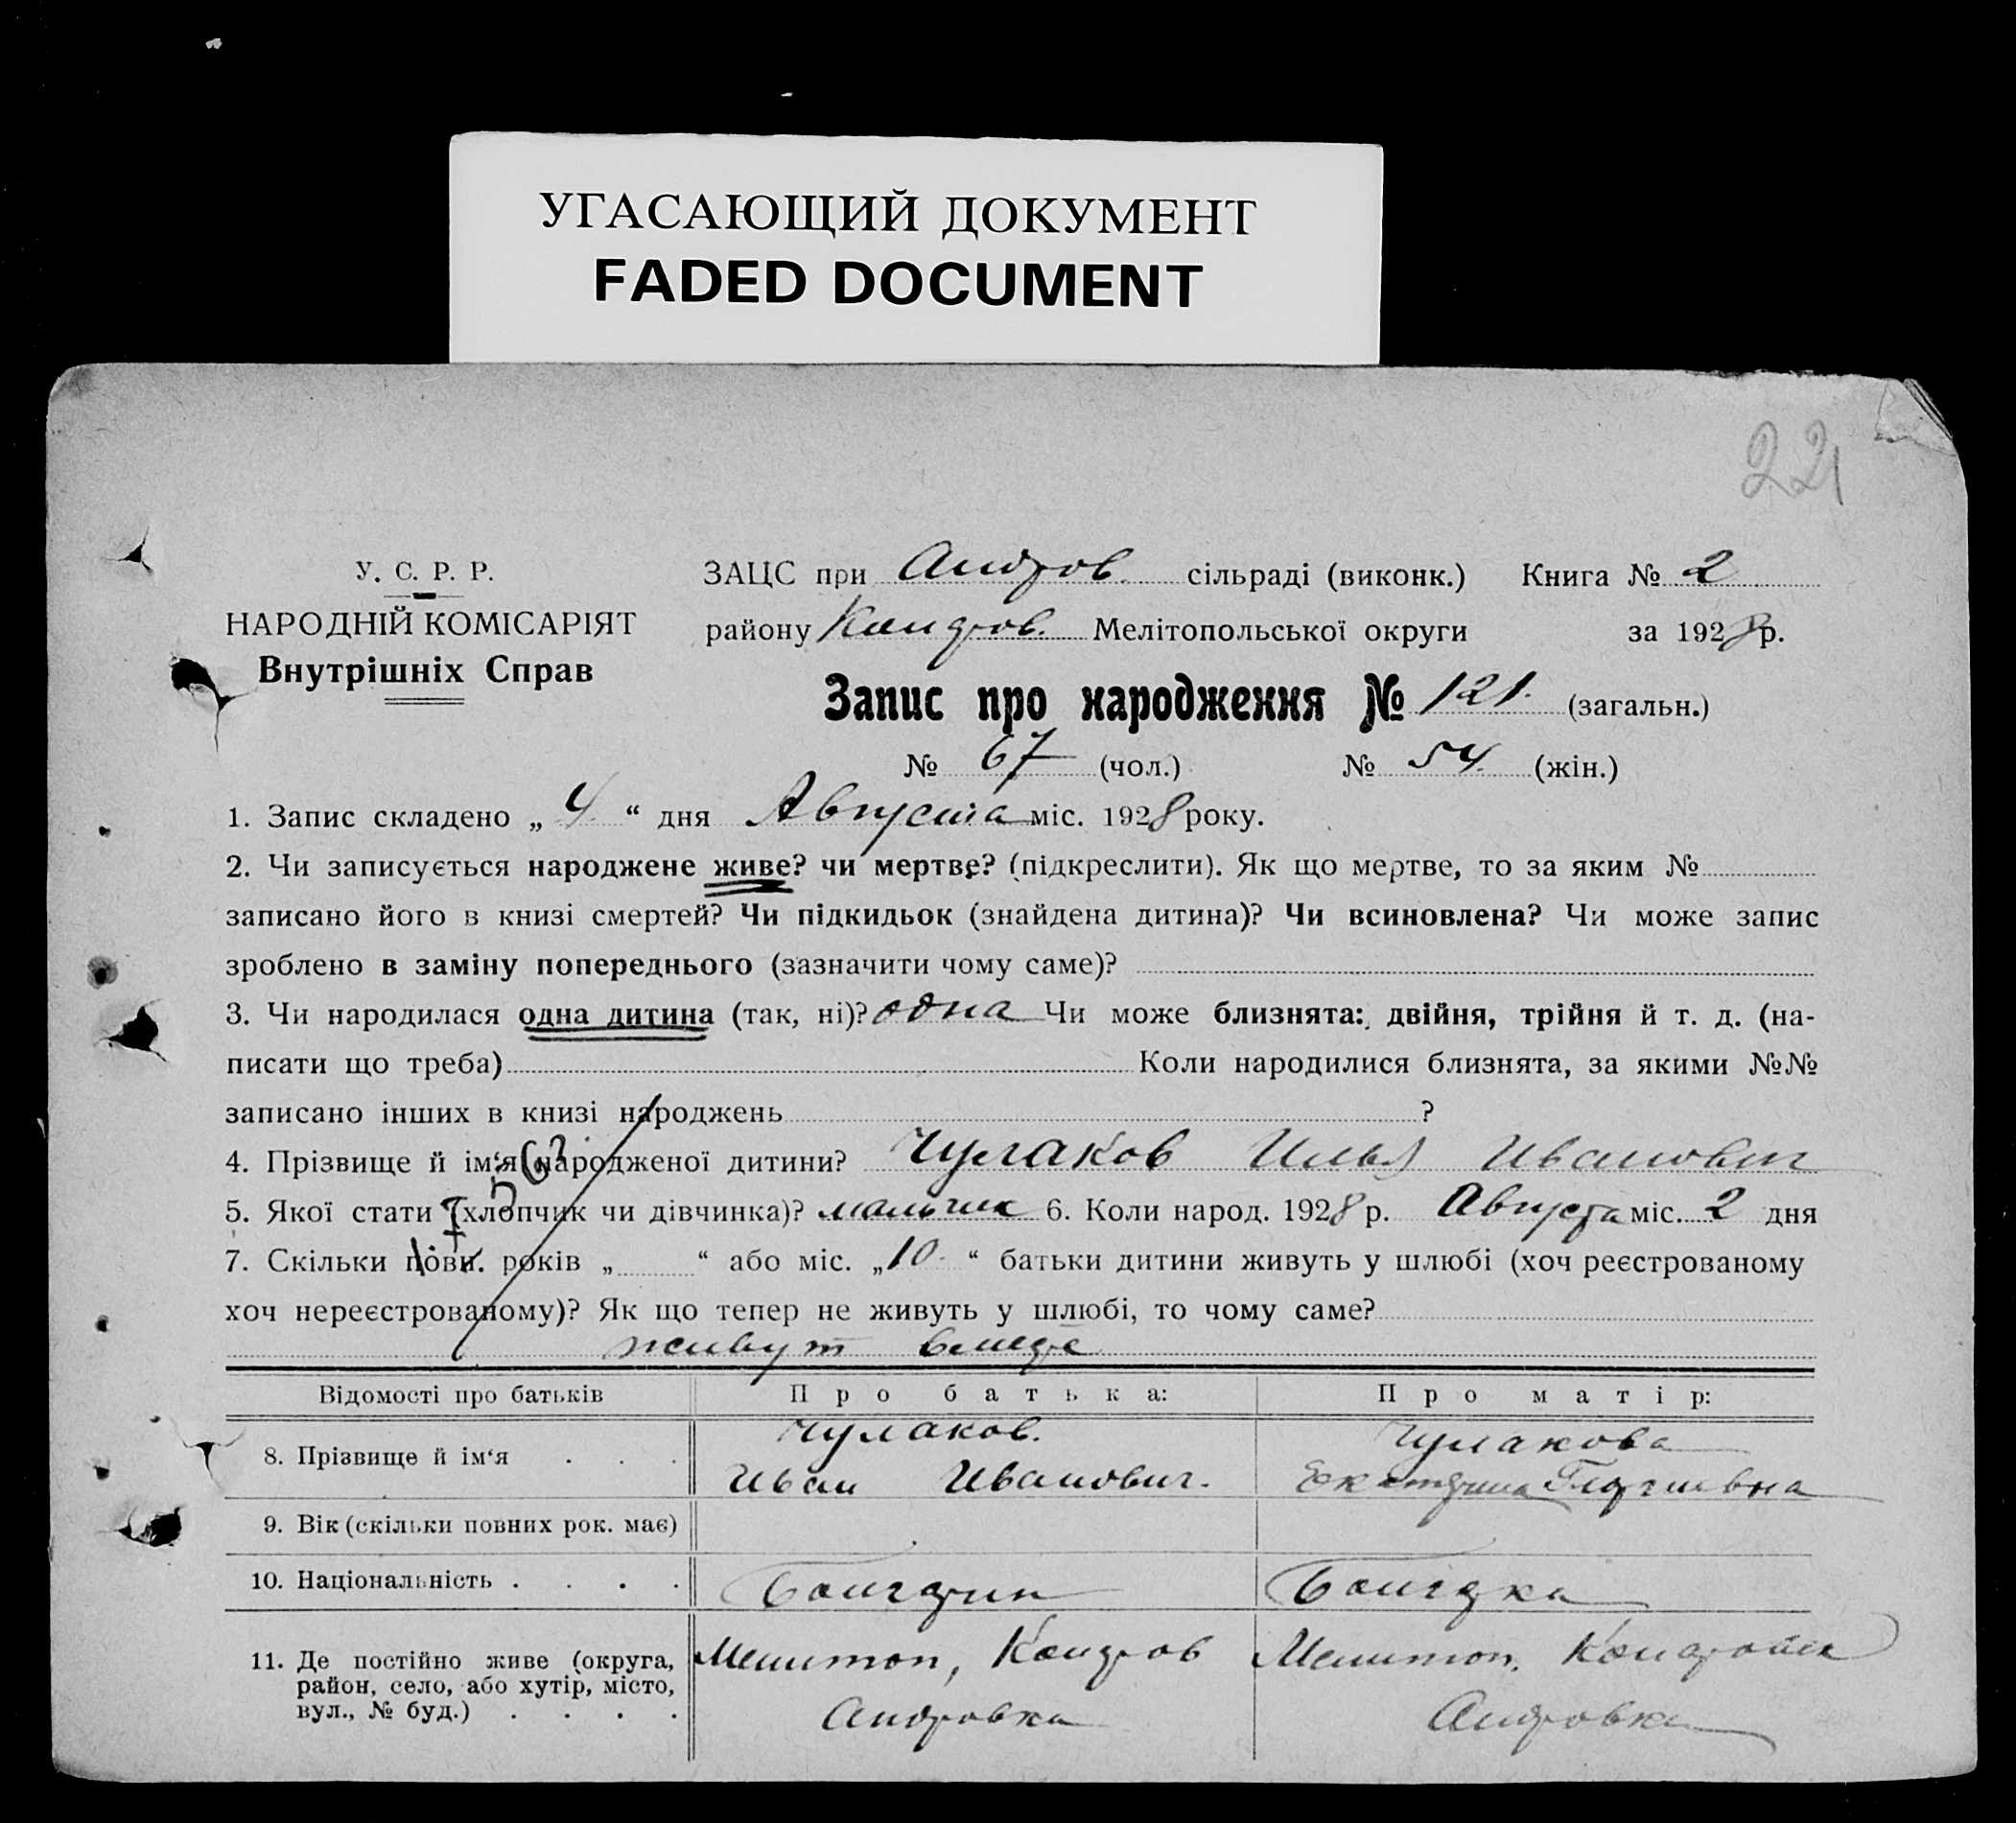 УГАСАЮЩИЙ ДОКУМЕНТ
FADED DOCUMENT
221
У. С. Р. Р.
НАРОДНІЙ КОМІСАРІЯТ
Внутрішніх Справ
ЗАЦС при Андров. сільраді (виконк.) Книга № 2
району Мелітопольської округи за 1928 р.
Запис про народження № 121. (загальн.)
№ 67 (чол.) № 54. (жін.)
1. Запис складено „ 4 “ дня Августа міс. 1928 року.
2. Чи записується народжене живе? чи мертве? (підкреслити). Як що мертве, то за яким №
записано його в книзі смертей? Чи підкидьок (знайдена дитина)? Чи всиновлена? Чи може запис
зроблено в заміну попереднього (зазначити чому саме)?
3. Чи народилася одна дитина (так, ні)? одна Чи може близнята: двійня, трійня й т. д. (на-
писати що треба) Коли народилися близнята, за якими №№
записано інших в книзі народжень ?
4. Прізвище й ім‘я народженої дитини? Чулаков Илья Иванович
5. Якої стати (хлопчик чи дівчинка)? мальчик 6. Коли народ. 1928 р. Августа міс. 2 дня
7. Скільки повн. років „ “ або міс. „ 10 “ батьки дитини живуть у шлюбі (хоч реєстрованому
хоч нереєстрованому)? Як що тепер не живуть у шлюбі, то чому саме?
живут вместе
Відомості про батьків Про батька: Про матір:
8. Прізвище й ім‘я . . . Чулаков. Иван Иванович. Чулакова Екатерина Георгиевна
9. Вік (скільки повних рок. має)
10. Національність . . . . Болгарин Болгарка
11. Де постійно живе (округа, район, село, або хутір, місто, вул., № буд.) . . . . Мелитоп, Андровка Мелитоп. Андровка